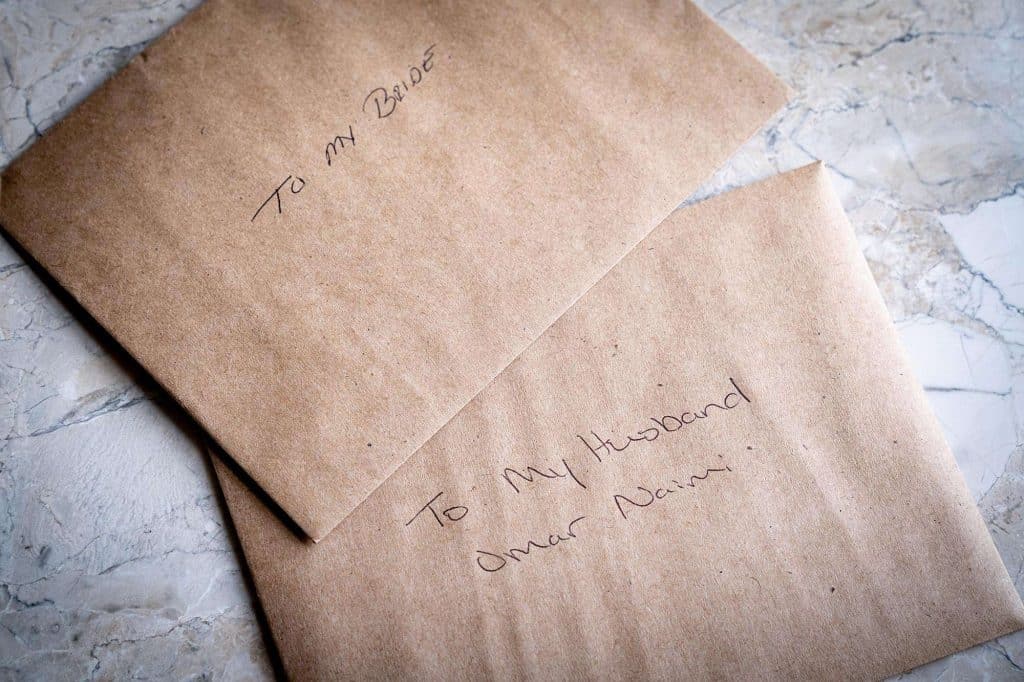 To My BRIDE.
To My Husband
Omar Naimi.